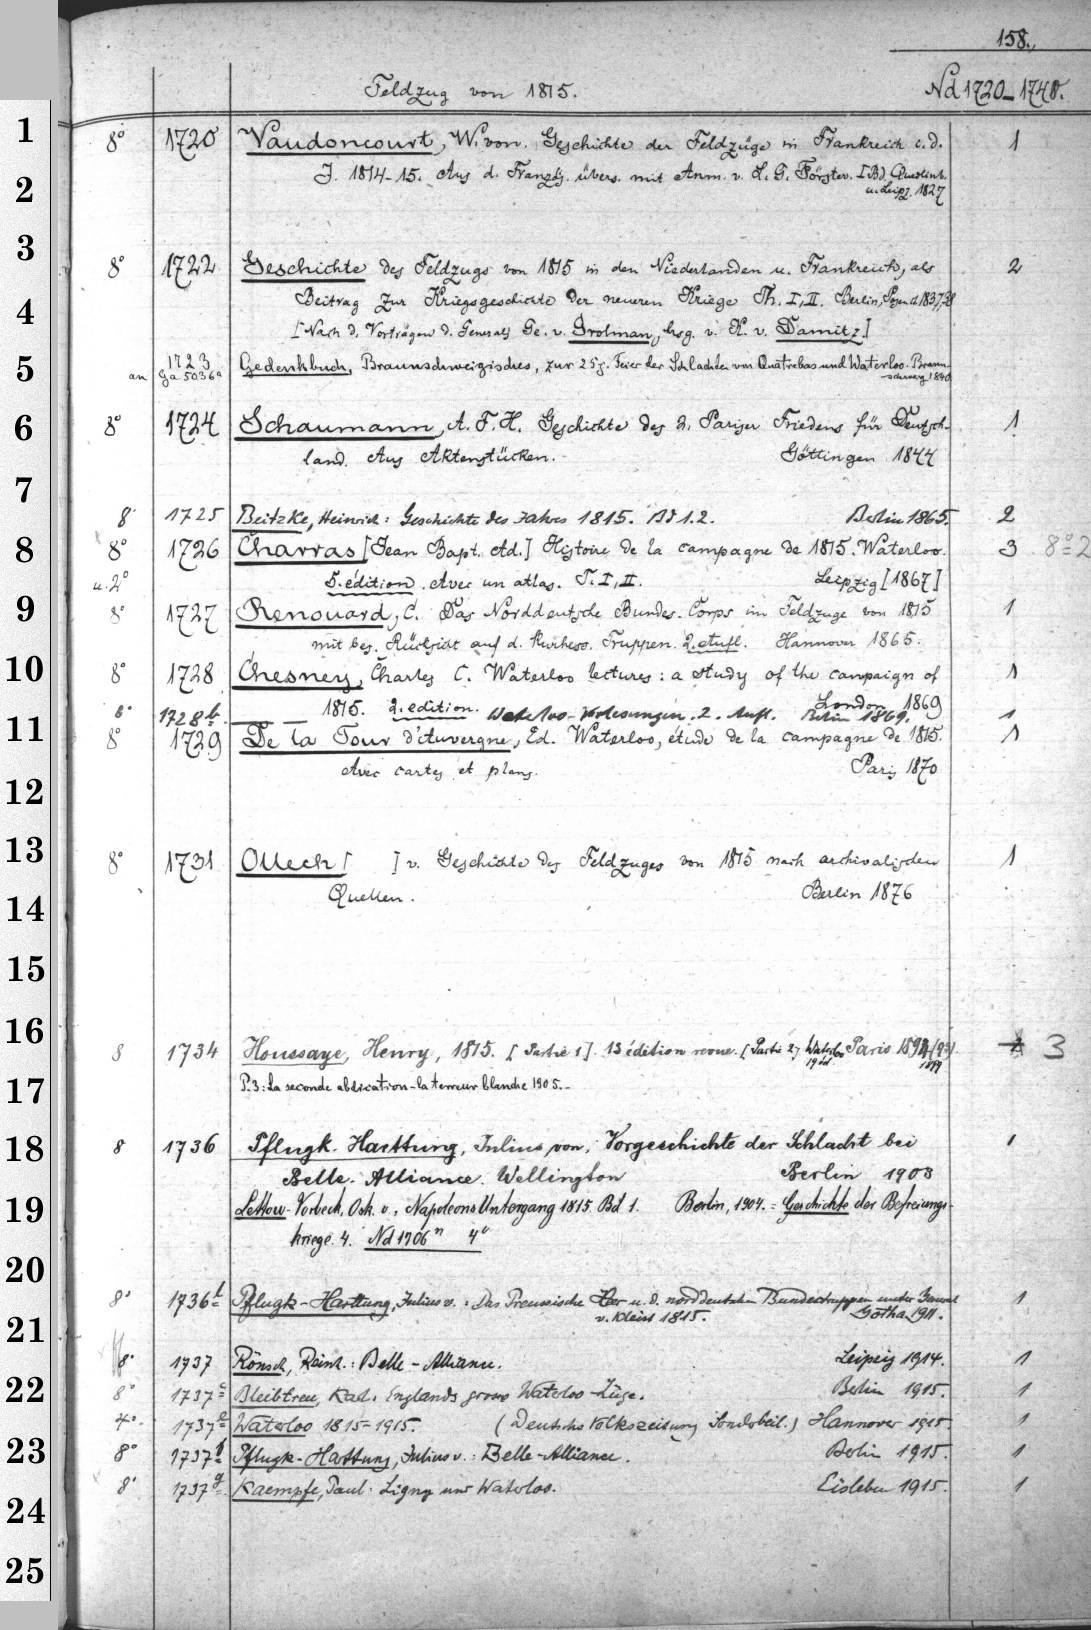 158.
Feldzug von 1815.
Nd 1720–1740.
8° 1720 Vaudoncourt, W. von. Geschichte der Feldzüge in Frankreich i. d. 1
J. 1814-15. Aus d. Französ. übers. mit Anm. v. L. G. Förster. I. Bd. Quedlinb.
u. Leipz. 1827
8° 1722 Geschichte des Feldzugs von 1815 in den Niederlanden u. Frankreich, als 2
Beitrag zur Kriegsgeschichte der neueren Kriege Th. I, II. Berlin, Posen 1837,38
[Nach d. Vorträgen d. Generals Ge. v. Grolman, hrsg. v. K. v. Damitz.]
an 1723 Gedenkbuch, Braunschweigisches, zur 25j. Feier der Schlachten von Quatrebas und Waterloo. Braun-
Ga 5036a schweig 1840
8° 1724 Schaumann, A. F. H. Geschichte des 2. Pariser Friedens für Deutsch- 1
land. Aus Aktenstücken. Göttingen 1844
8° 1725 Beitzke, Heinrich: Geschichte des Jahres 1815. Bd 1.2. Berlin 1865. 2
8° 1726 Charras [Jean Bapt. Ad.] Histoire de la campagne de 1815. Waterloo. 3 8° = 2
u. 2° 5. édition. Avec un atlas. T. I, II. Leipzig [1867]
8° 1727 Renouard, C. Das Norddeutsche Bundes-Corps im Feldzuge von 1815 1
mit bes. Rücksicht auf d. Kurhess. Truppen. 2. Aufl. Hannover 1865.
8° 1728 Chesney, Charles C. Waterloo lectures: a study of the campaign of 1
1815. 2. edition. London 1869
8° 1728b — — Waterloo-Vorlesungen. 2. Aufl. Berlin 1869. 1
8° 1729 De la Tour d'Auvergne, Ed. Waterloo, étude de la campagne de 1815. 1
Avec cartes et plans. Paris 1870
8° 1731 Ollech [ ] v. Geschichte des Feldzuges von 1815 nach archivalischen 1
Quellen. Berlin 1876
8 1734 Houssaye, Henry, 1815. [Partie 1]. 13 édition revue. [Partie 2] Waterloo Paris 1894 (93). 3
1899
P. 3: La seconde abdication – la terreur blanche 1905.–
8 1736 Pflugk-Harttung, Julius von, Vorgeschichte der Schlacht bei 1
Belle-Alliance. Wellington Berlin 1903
Lettow-Vorbeck, Osk. v., Napoleons Untergang 1815. Bd 1. Berlin, 1904. = Geschichte der Befreiungs-
kriege. 4. Nd 1706n 4°
8° 1736b Pflugk-Harttung, Julius v.: Das Preussische Heer u. d. norddeutschen Bundestruppen unter General 1
v. Kleist 1815. Gotha 1911.
8° 1737 Rönsch, Reinh.: Belle-Alliance. Leipzig 1914. 1
8° 1737c Bleibtreu, Karl: Englands grosse Waterloo-Lüge. Berlin 1915. 1
4° 1737e Waterloo 1815–1915. (Deutsche Volkszeitung Sonderbeil.) Hannover 1915. 1
8° 1737f Pflugk-Harttung, Julius v.: Belle-Alliance. Berlin 1915. 1
8° 1737g Kaempfe, Paul: Ligny und Waterloo. Eisleben 1915. 1
1
2
3
4
5
6
7
8
9
10
11
12
13
14
15
16
17
18
19
20
21
22
23
24
25